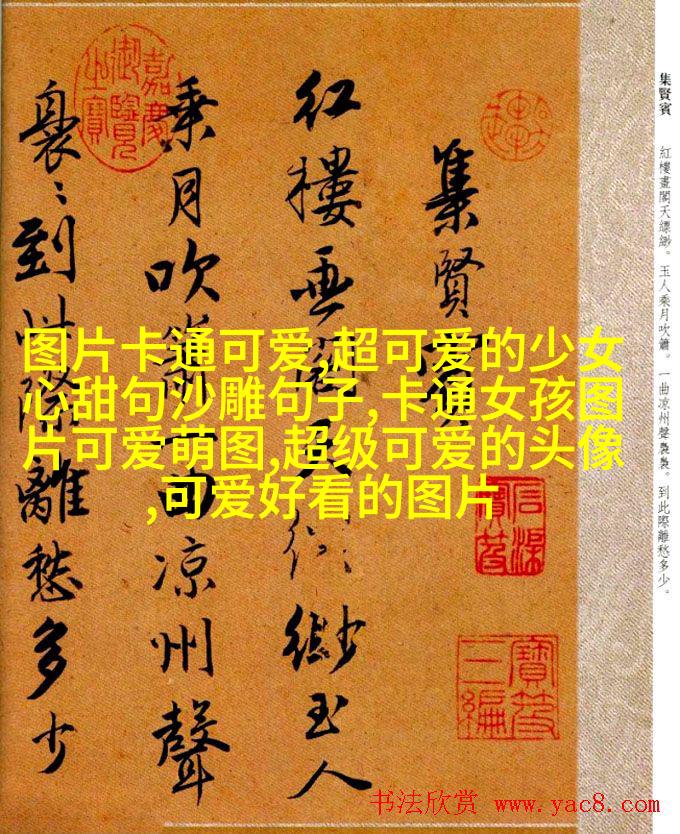 集賢賓　紅樓畫閣天縹緲。玉人乘月吹簫。一曲凉州聲裊裊。到此際離愁多少。
集賢
红樓畫閣天縹緲玉人
乘月吹簫一曲凉州聲
裊〻到此際離愁多少
嘉慶御覽之寶
寶笈三編
图片卡通可爱,超可爱的少女
心甜句沙雕句子,卡通女孩图
片可爱萌图,超级可爱的头像
,可爱好看的图片
书法欣赏 www.yac8.com